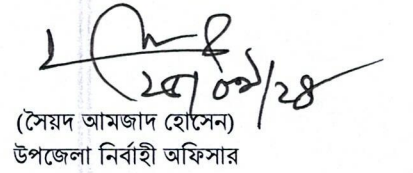 ২৫/০৯/২৪
(সৈয়দ আমজাদ হোসেন)
উপজেলা নির্বাহী অফিসার